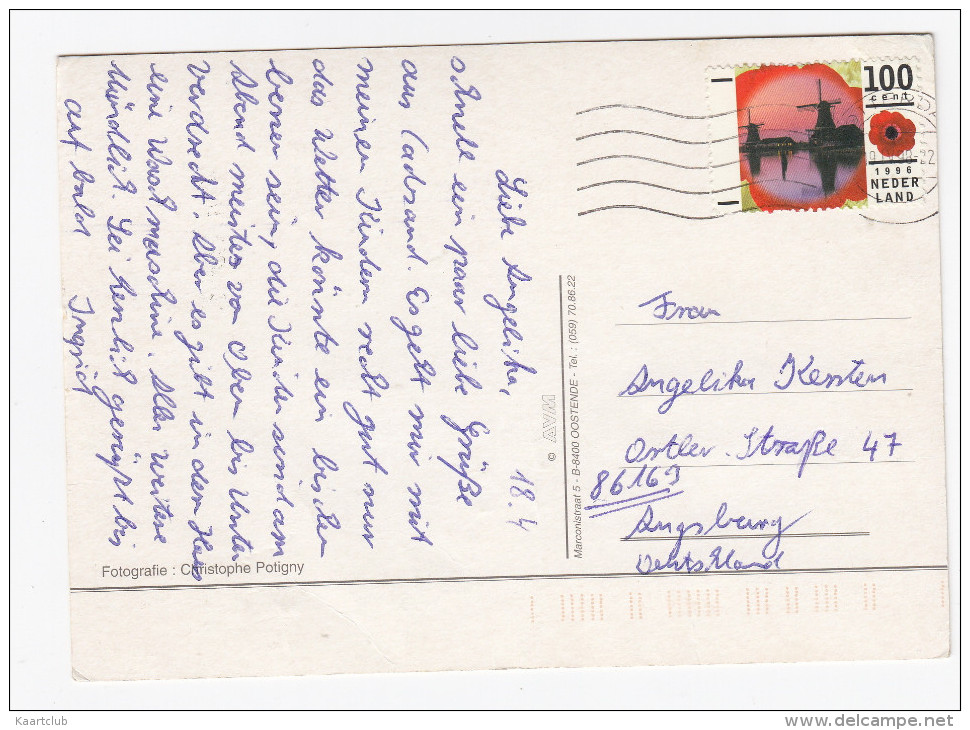 18.4
Liebe Angelika,
schnell ein paar liebe Grüße
aus Cadzand. Es geht mir mit
meinen Kindern recht gut nur
das Wetter könnte ein bischen
besser sein, die Kinder sind am
Abend meistes von Oben bis Unten
verdreckt. Aber es gibt in dem Haus
eine Waschmaschine. Alles weitere
Mündlich. Sei herzlich gegrüßt bis
auf bald Ingrid
Fotografie : Christophe Potigny
© AVM
Marconistraat 5 - B-8400 OOSTENDE - Tel. : (059) 70.86.22
100
cent
1996
NEDER
LAND
Frau
Angelika Kersten
Ortler-Straße 47
86169
Augsburg
Deutschland
Kaartclub
www.delcampe.net